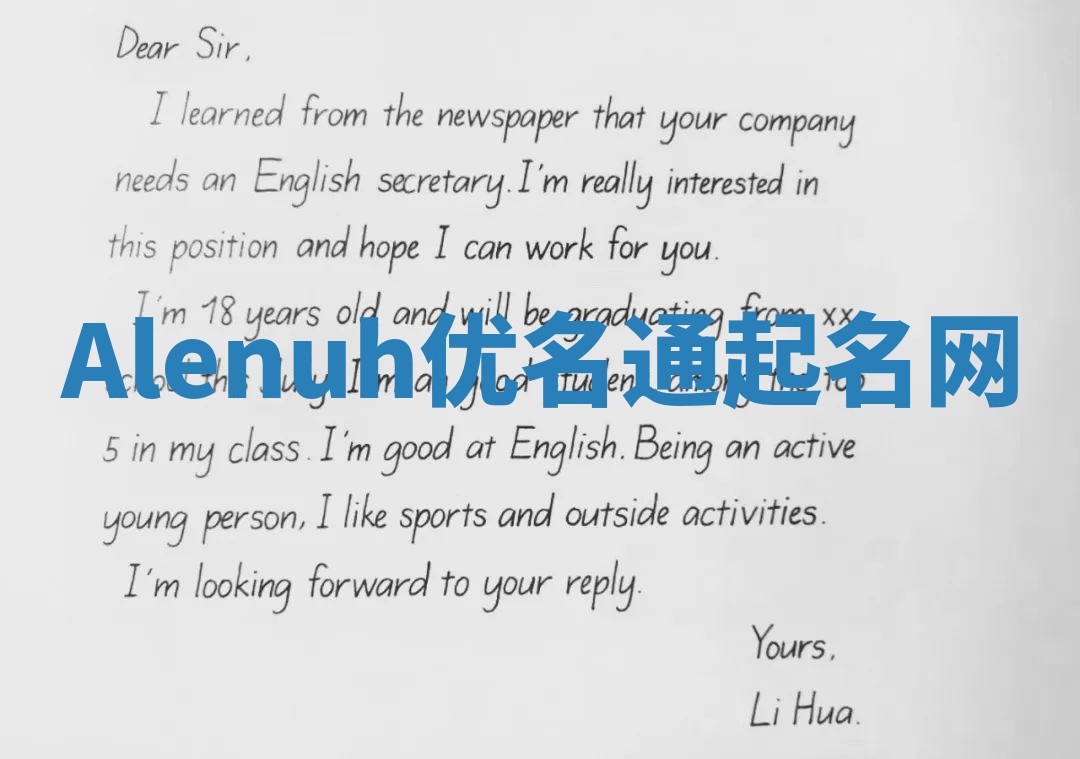 Dear Sir,
I learned from the newspaper that your company
needs an English secretary. I'm really interested in
this position and hope I can work for you.
I'm 18 years old and will be graduating from xx
Alenuh优名通起名网
school this July. I'm a good student among the top
5 in my class. I'm good at English. Being an active
young person, I like sports and outside activities.
I'm looking forward to your reply.
Yours,
Li Hua.